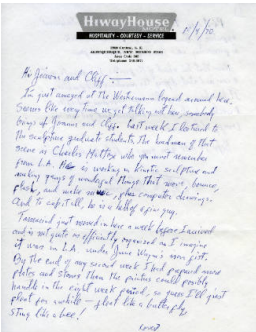 HIWAYHOUSE
HOSPITALITY - COURTESY - SERVICE
ALBUQUERQUE, NEW MEXICO
and Cliff —
I'm just amazed at the beyond around here.
Seems like every time we get talking out here, somebody
brings up and Cliff. Last week I lectured to
the sculpture graduate students. The head man of that
scene is Charles Mattox who you must remember
from L.A. He is working in Kinetic sculpture and
making gangs of wonderful things that move, bounce,
and make noise, plus computer drawings.
And to cap it all, he is a hell of a fine guy.
Tamarind just moved in here a week before I arrived
and is not quite as efficiently organized as I imagine
it was in L.A. under June Wayne's iron fist.
By the end of my second week I had prepared more
plates and stones than the printers could possibly
handle in the eight week period, so now I'll just
float for awhile — float like a butterfly
sting like a bee!
(over)